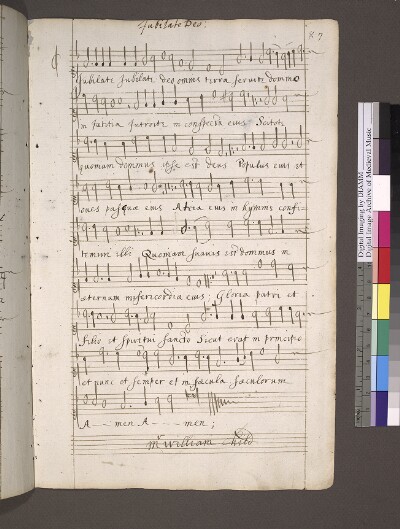 Jubilate Deo:
87
Jubilate Jubilate deo omnis terra servite domino
in Laetitia Introite in conspectu eius Scitote
quoniam dominus ipse est deus Populus eius et
oues pasquæ eius Atria eius in hymnis confi-
temini illi Quoniam suauis est dominus in
æternum misericordia eius: Gloria patri et
Filio et spiritui sancto Sicut erat in principio
et nunc et semper et in sæcula sæculorum
A---men A----men;
Mr William Child
Digital Imaging by DIAMM
Digital Image Archive of Medieval Music